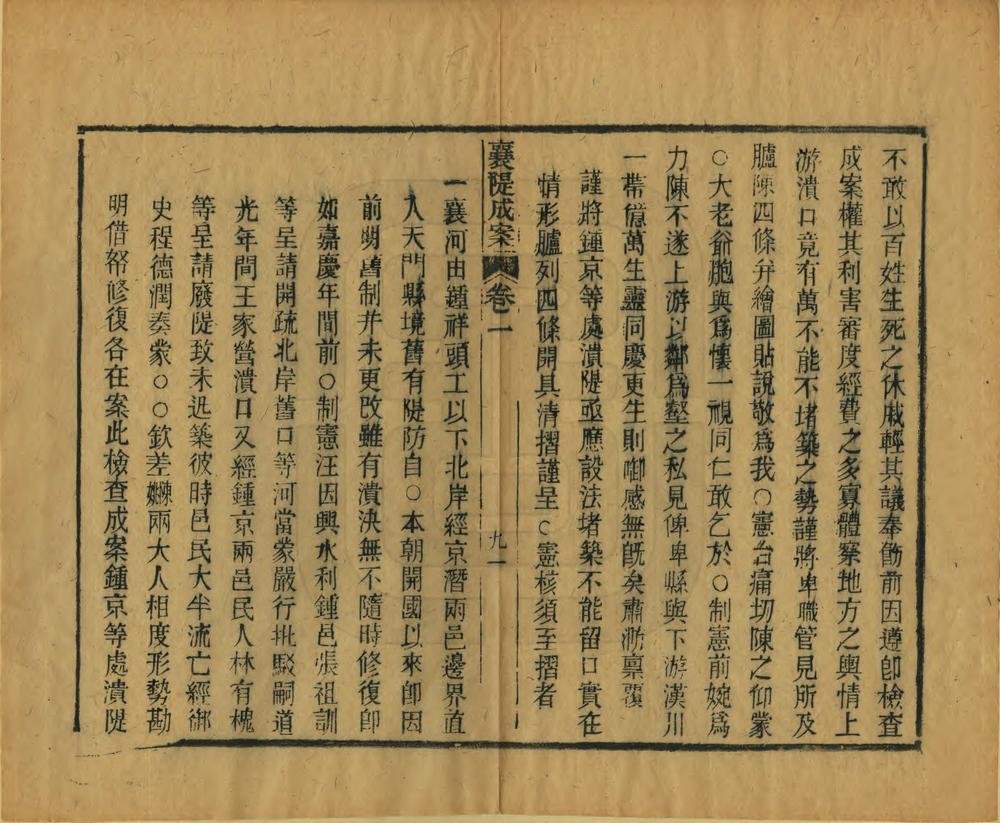 不敢以百姓生死之休戚輕其議奉飭前因遵卽檢查
成案權其利害審度經費之多寡體察地方之輿情上
游潰口竟有萬不能不堵築之勢謹將卑職管見所及
臚陳四條并繪圖貼說敬爲我○憲台痛切陳之仰蒙
○大老爺胞與爲懷一視同仁敢乞於○制憲前婉爲
力陳不遂上游以鄰爲壑之私見俾卑縣與下游漢川
一帶億萬生靈同慶更生則啣感無旣矣肅泐禀覆
謹將鍾京等處潰隄亟應設法堵築不能留口實在
情形臚列四條開具清摺謹呈○憲核須至摺者
襄隄成案 卷一 九一
一襄河由鍾祥頭工以下北岸經京潛兩邑邊界直
入天門縣境舊有隄防自○本朝開國以來卽因
前明舊制并未更改雖有潰決無不隨時修復卽
如嘉慶年間前○制憲汪因興水利鍾邑張祖訓
等呈請開疏北岸舊口等河當蒙嚴行批駁嗣道
光年間王家營潰口又經鍾京兩邑民人林有槐
等呈請廢隄致未迅築彼時邑民大半流亡經御
史程德潤奏蒙○○欽差兩大人相度形勢勘
明借帑修復各在案此檢查成案鍾京等處潰隄